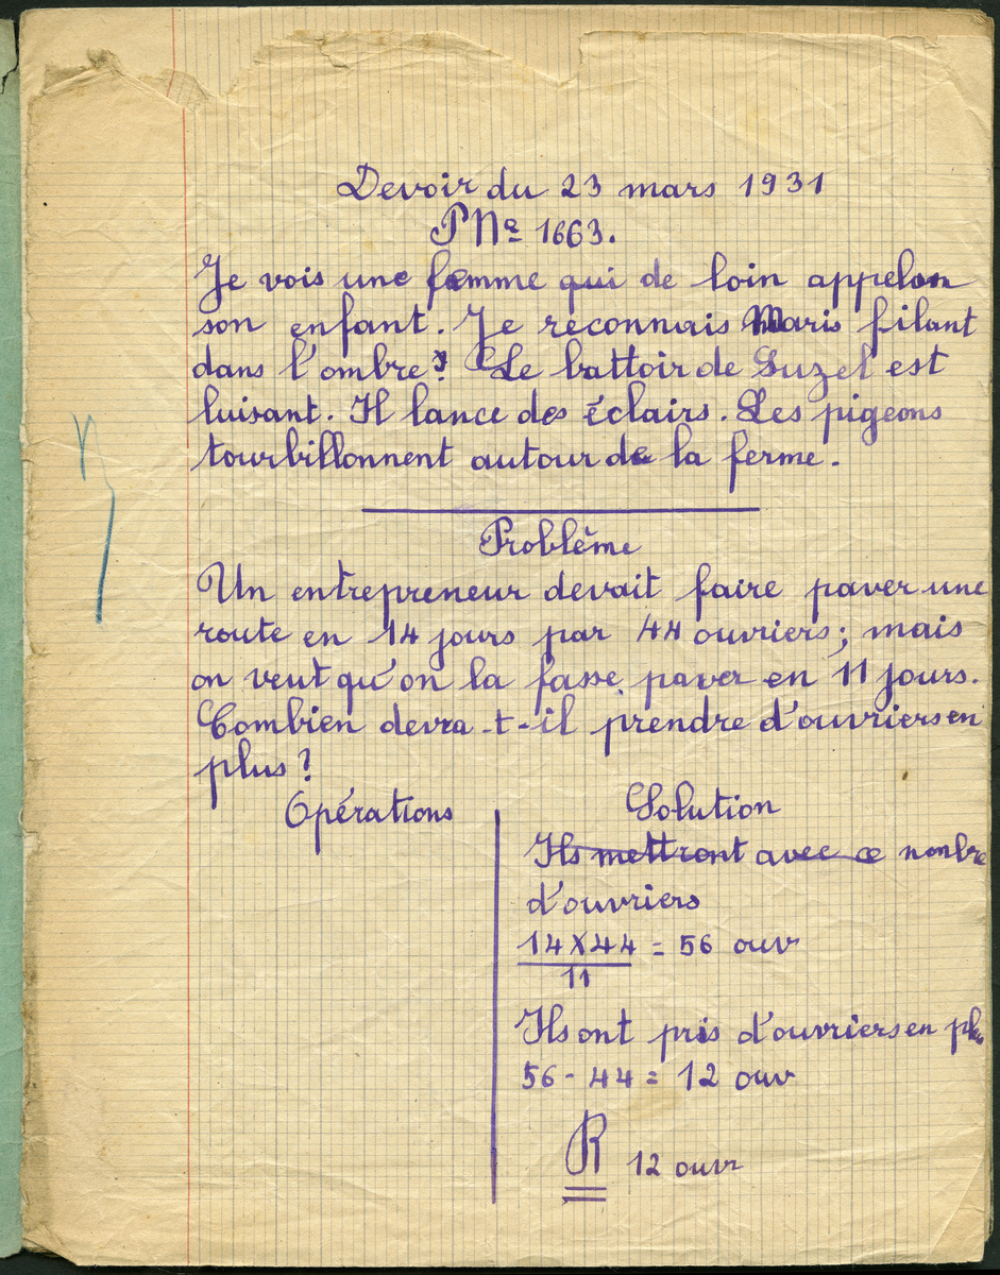 Devoir du 23 mars 1931
P Nº 1663.
Je vois une femme qui de loin appelon
son enfant. Je reconnais Maris filant
dans l'ombre? Le battoir de Suzel est
luisant. Il lance des éclairs. Les pigeons
tourbillonnent autour de la ferme.
Problême
Un entrepreneur devait faire paver une
route en 14 jours par 44 ouvriers; mais
on veut qu'on la fasse paver en 11 jours.
Combien devra-t-il prendre d'ouvriers en
plus?
Opérations
Solution
Ils mettront avec ce nombre
d'ouvriers
14 X 44 = 56 ouvr
11
Ils ont pris d'ouvriers en plus
56 - 44 = 12 ouv
R 12 ouvr